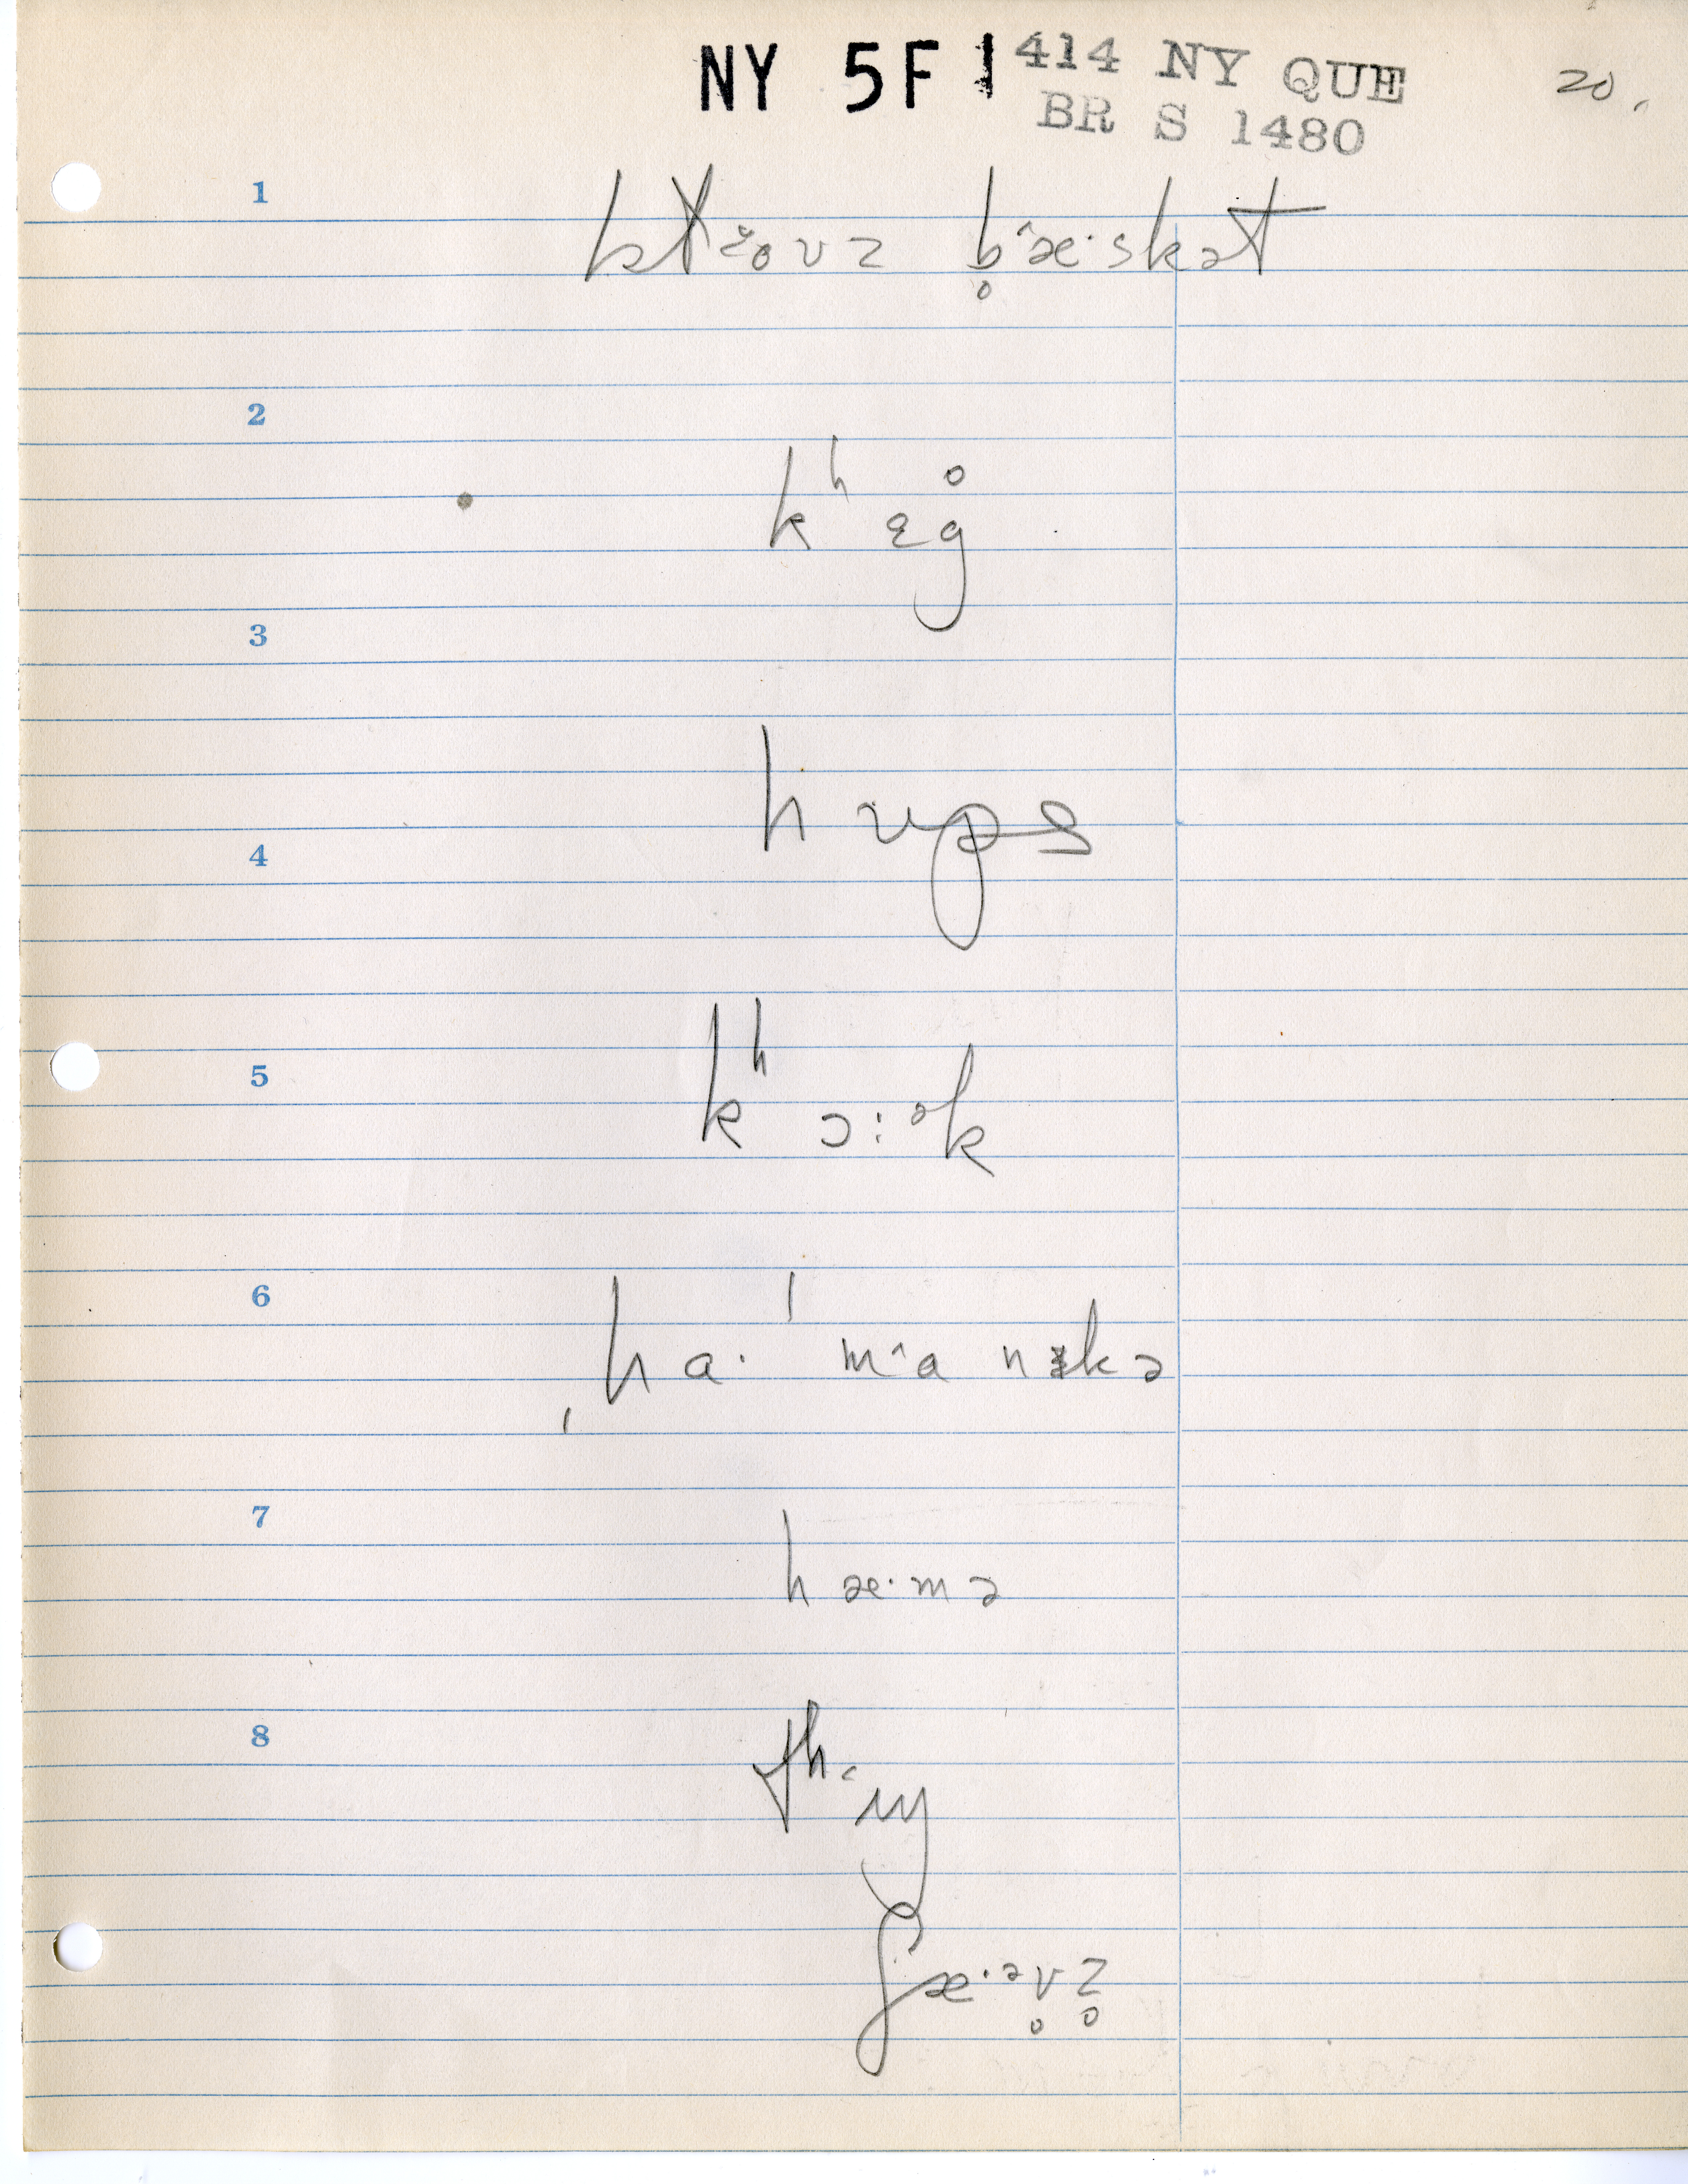 NY 5F 1 414 NY QUE
BR S 1480
20.
1
b̥᷾æ·skət
2
kʰɛg̊
3
hʊps
4
5
kʰɔ:ᵊk
6
ˌhɑ·ˈm᷾ɑnɪkə
7
hæ·mə
8
ʃæ·ᵊv̥z̥